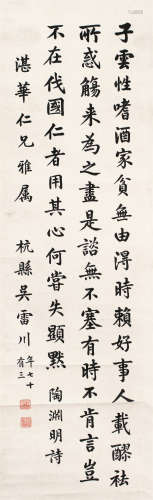 子雲性嗜酒家貧無由淂時賴好事人載醪袪
所惑觴来為之盡是諮無不塞有時不肯言豈
不在伐國仁者用其心何嘗失顯默 陶淵明詩
湛華仁兄雅属 杭縣吴雷川年七十有三